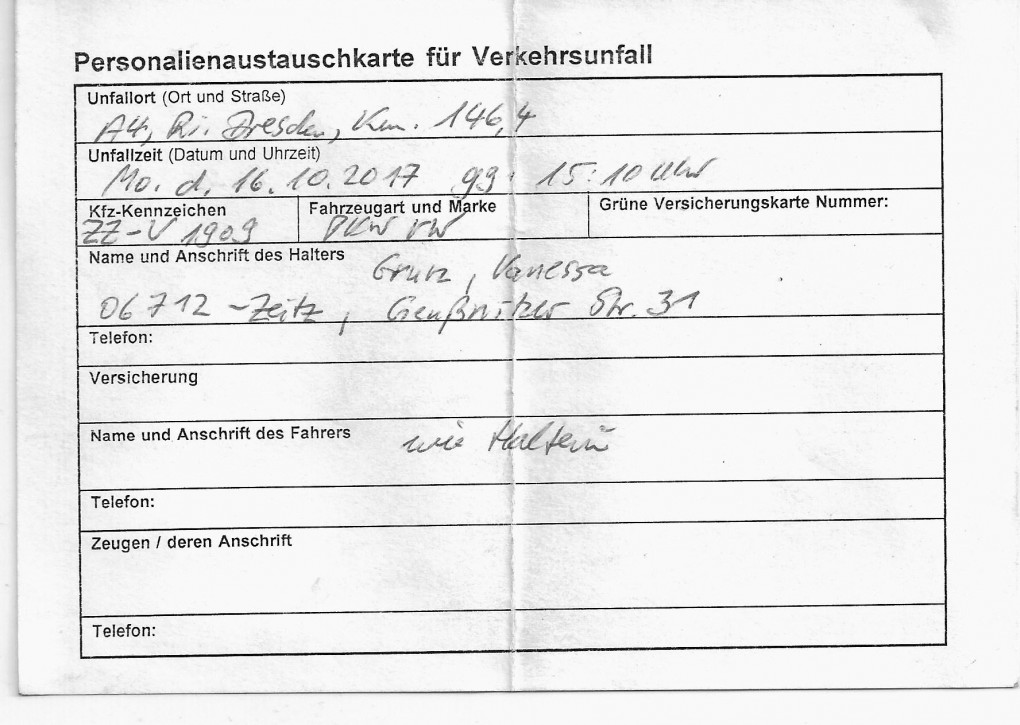 Personalienaustauschkarte für Verkehrsunfall
Unfallort (Ort und Straße)
A4, Ri. Dresden, Km. 146,4
Unfallzeit (Datum und Uhrzeit)
Mo. d. 16.10.2017 gg. 15:10 Uhr
Kfz-Kennzeichen
ZZ-V 1909
Fahrzeugart und Marke
PKW VW
Grüne Versicherungskarte Nummer:
Name und Anschrift des Halters
Vanessa
06712 - Zeitz, Str. 31
Telefon:
Versicherung
Name und Anschrift des Fahrers
wie Halterin
Telefon:
Zeugen / deren Anschrift
Telefon: